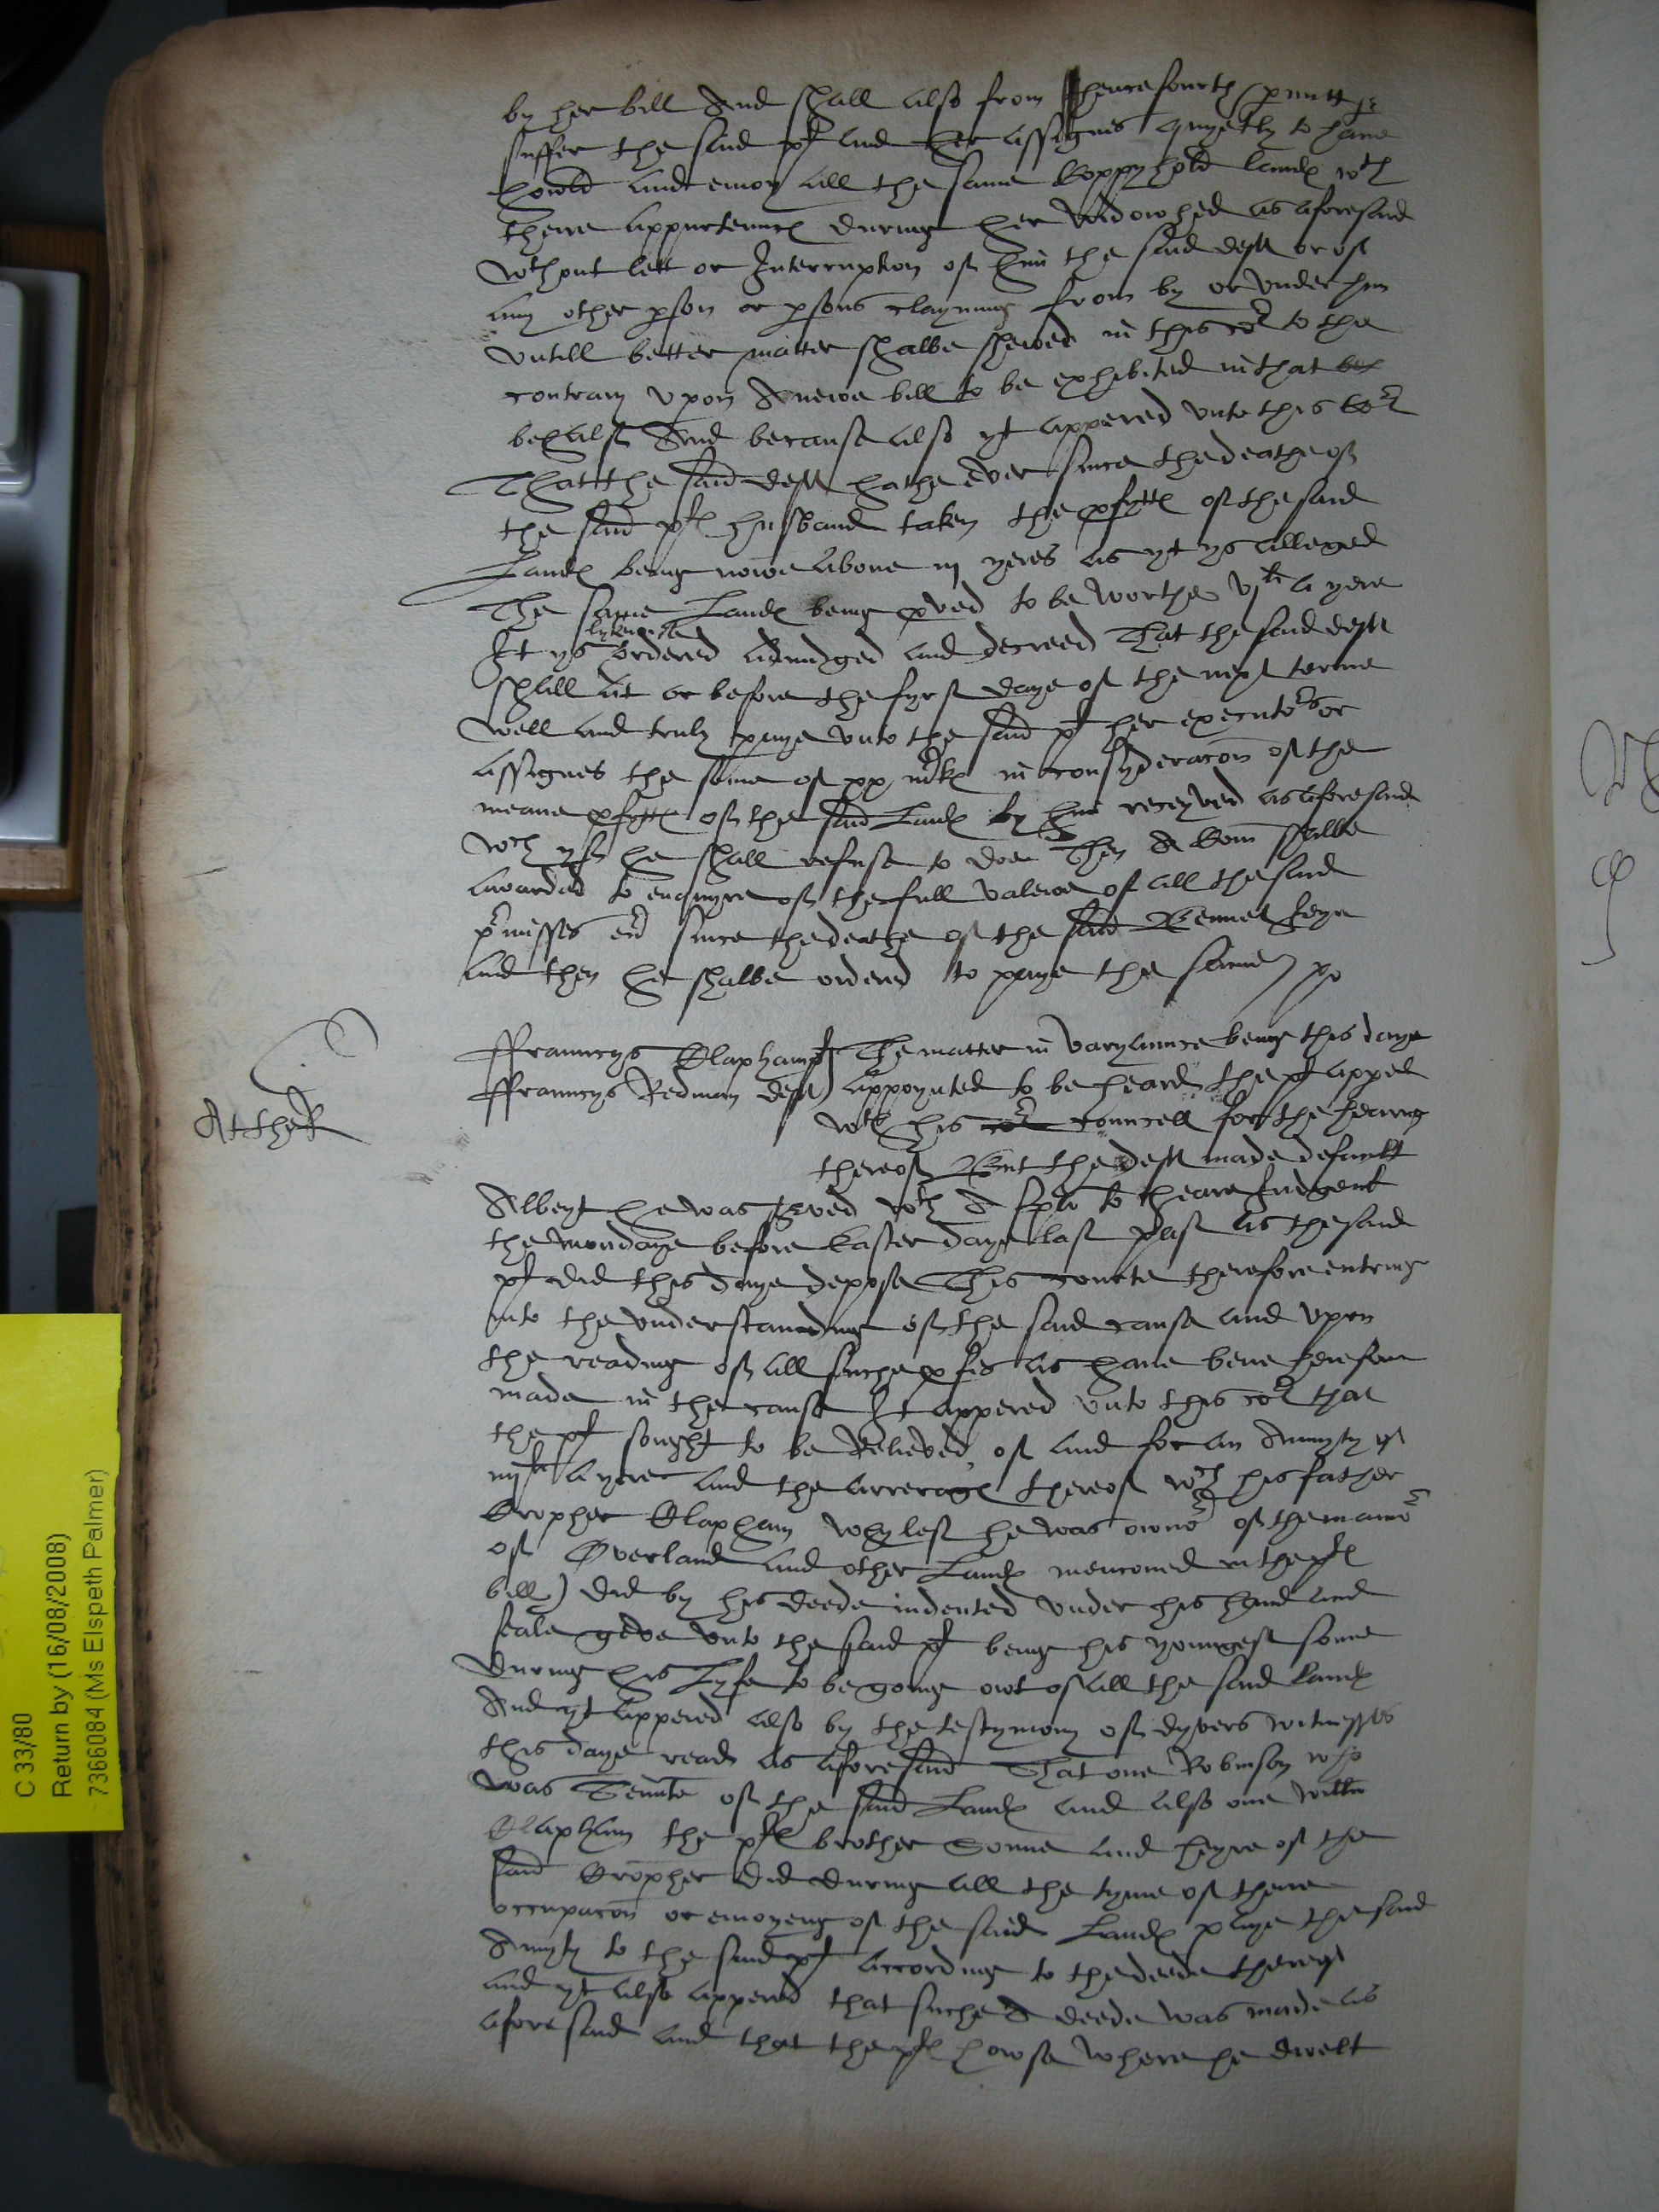 by her bill And shall also from hencefourth p'mitt &
suffer the said plt and her assignes quyetly to have
howld and enioy all the same Coppyhold landes wth
there appurtennces during her Widowhed as aforesaid
wthout lett or Interruption of him the said deft or of
any other pson or psons clayming from by or under him
untill better matter shalbe shewed in this cort to the
contrary upon A newe bill to be exhibited in that
behalf And because also yt appered unto this Cort
That the said deft hathe ever since the deathe of
the said pltes husband taken the pfyttes of the said
Landes being nowe above iij yeres as yt ys alleged
The same Landes being pved to be worthe vjli a yere
It ys lykewise ordered adiudged and decreed That the said deft
shall at or before the fyrst daye of the next terme
well and truly paye unto the said plt her executors or
assignes the some of xx mrkes in consyderacon of the
meane pfyttes of the said Landes by him receyved as aforesaid
wch yf he shall refuse to doe Then A Com shalbe
awarded to enquyre of the full valewe of all the said
pmisses ev' since the deathe of the said Bennet Feye
and then he shalbe ordered to paye the same
ffrauncys Clapham plt The matter in varyaunce being this daye
ffrauncys Redman deft appoynted to be heard the plt apped
At the R
wth his councell for the hearing
thereof But the deft made default
Albeyt he was s'ved wth A spa to heare Judgent
the mondaye before Easter daye last past as the said
plt did this daye depose This courte therefore entring
into the understanding of the said cause and upon
the reading of all suche pfes as have bene heretofore
made in the cause It appered unto this cort that
the plt sought to be Relieved of and for an Annyty of
iiijli a yere and the arrerages thereof wch his father
Xropher Clapham whylest he was owner of the mannor
of Overland and other Landes mencioned in the pltes
bill) did by his deede indented under his hand and
seale geve unto the said plt being his youngest sonne
during his Lyfe to be going owt of all the said landes
And yt appered also by the testymony of dyvers witnesses
this daye read as aforesaid That one Robinson who
was Tennte of the said Landes and also one Willm
Claphm the pltes brother Sonne and heyre of the
said Xropher did during all the tyme of there
occupacon or enioyeng of the said Landes paye the said
Annyty to the said plt according to the deede thereof
and yt also appered that suche A deede was made as
aforesaid and that the pltes howse where he dwelt
C 33/80
Return by (16/08/2008)
7366084 (Ms Elspeth Palmer)